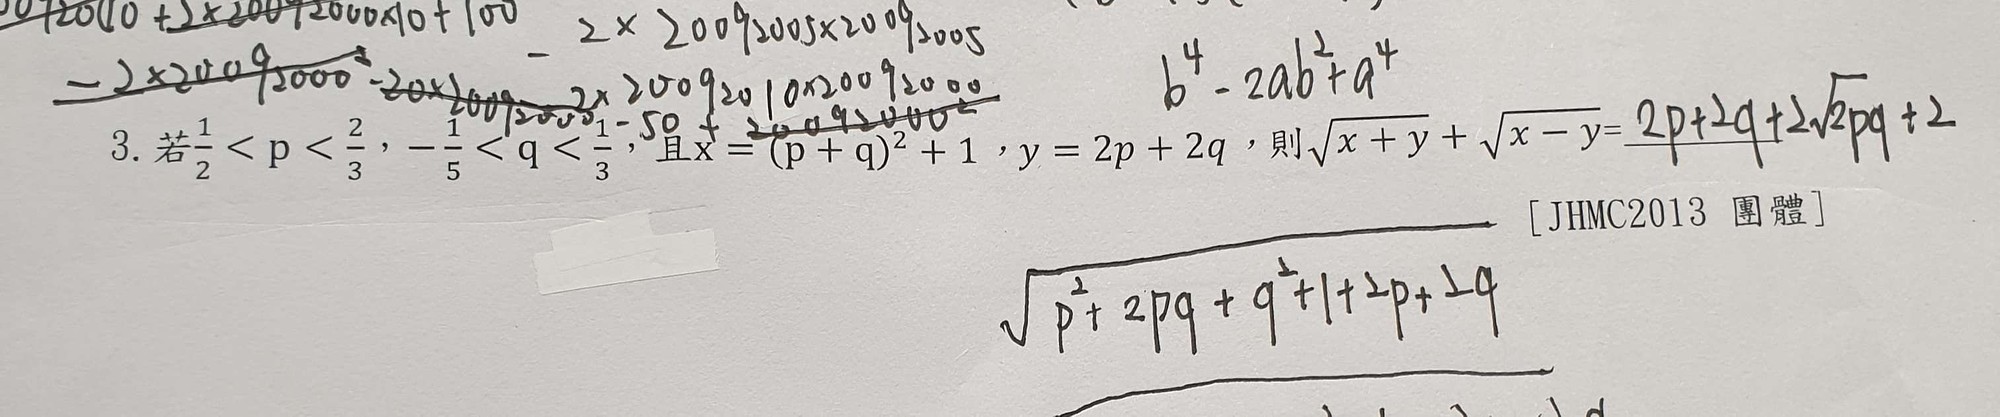 2010 + 2×20092000×10 + 100
- 2 × 20092005×20092005
- 2×20092000² - 20×20092000 - 50 + 20092000²
2× 20092010×20092000
b⁴ - 2ab² + a⁴
3. 若 1/2 < p < 2/3，-1/5 < q < 1/3，且x = (p + q)² + 1，y = 2p + 2q，則√(x + y) + √(x - y)= 2p+2q+2√2pq+2
[JHMC2013 團體]
√(p²+2pq+q²+1+2p+2q)